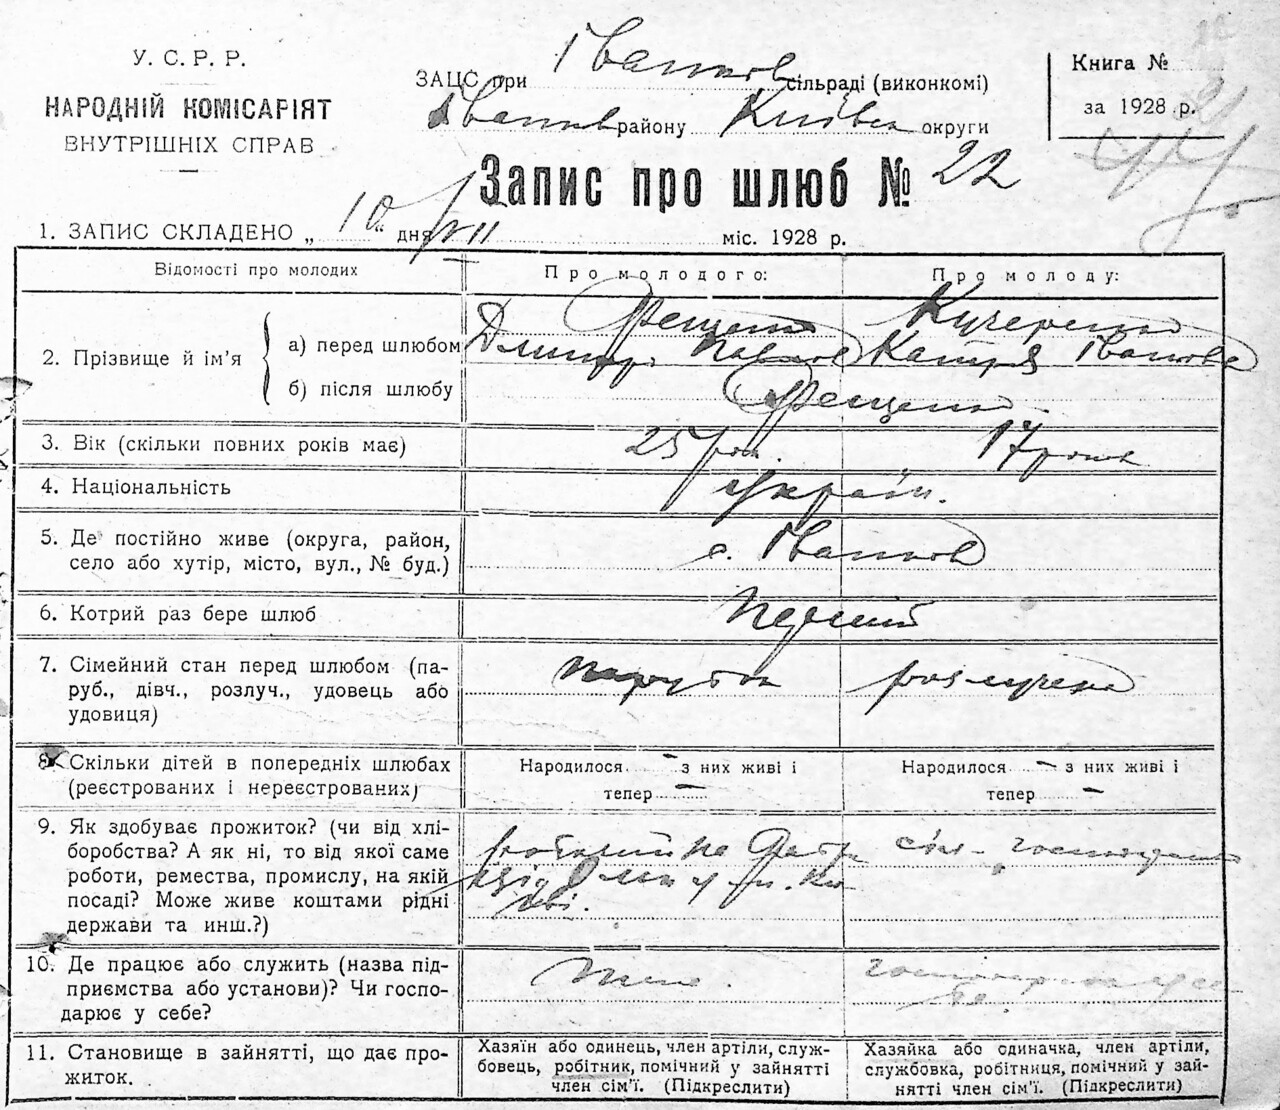 У. С. Р. Р.
НАРОДНІЙ КОМІСАРІЯТ
ВНУТРІШНІХ СПРАВ
ЗАЦС при Іванков сільраді (виконкомі)
Іванков району Київск округи
Книга №
за 1928 р.
Запис про шлюб № 22
1. ЗАПИС СКЛАДЕНО „ 10 " дня VII міс. 1928 р.
Відомості про молодих
Про молодого:
Про молоду:
2. Прізвище й ім'я
а) перед шлюбом
б) після шлюбу
Фещенко
Дмитро Павлов
Кучеренко
Катря Іванова
Фещенко
3. Вік (скільки повних років має)
25 рок.
17 років
4. Національність
україн.
5. Де постійно живе (округа, район,
село або хутір, місто, вул., № буд.)
с. Іванков
6. Котрий раз бере шлюб
перший
7. Сімейний стан перед шлюбом (па-
руб., дівч., розлуч., удовець або
удовиця)
парубок
розлучена
8. Скільки дітей в попередніх шлюбах
(реєстрованих і нереєстрованих)
Народилося - з них живі і
тепер -
Народилося - з них живі і
тепер -
9. Як здобуває прожиток? (чи від хлі-
боробства? А як ні, то від якої саме
роботи, ремества, промислу, на якій
посаді? Може живе коштами рідні
держави та инш.?)
сіль - господар
10. Де працює або служить (назва під-
приємства або установи)? Чи госпо-
дарює у себе?
11. Становище в зайнятті, що дає про-
житок.
Хазяїн або одинець, член артілі, служ-
бовець, робітник, помічний у зайнятті
член сім'ї. (Підкреслити)
Хазяйка або одиначка, член артіли,
службовка, робітниця, помічний у зай-
нятті член сім'ї. (Підкреслити)